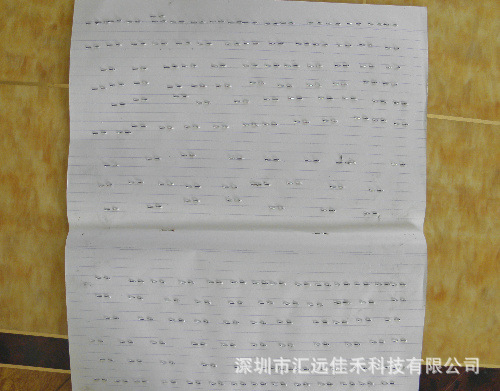 深圳市汇远佳禾科技有限公司